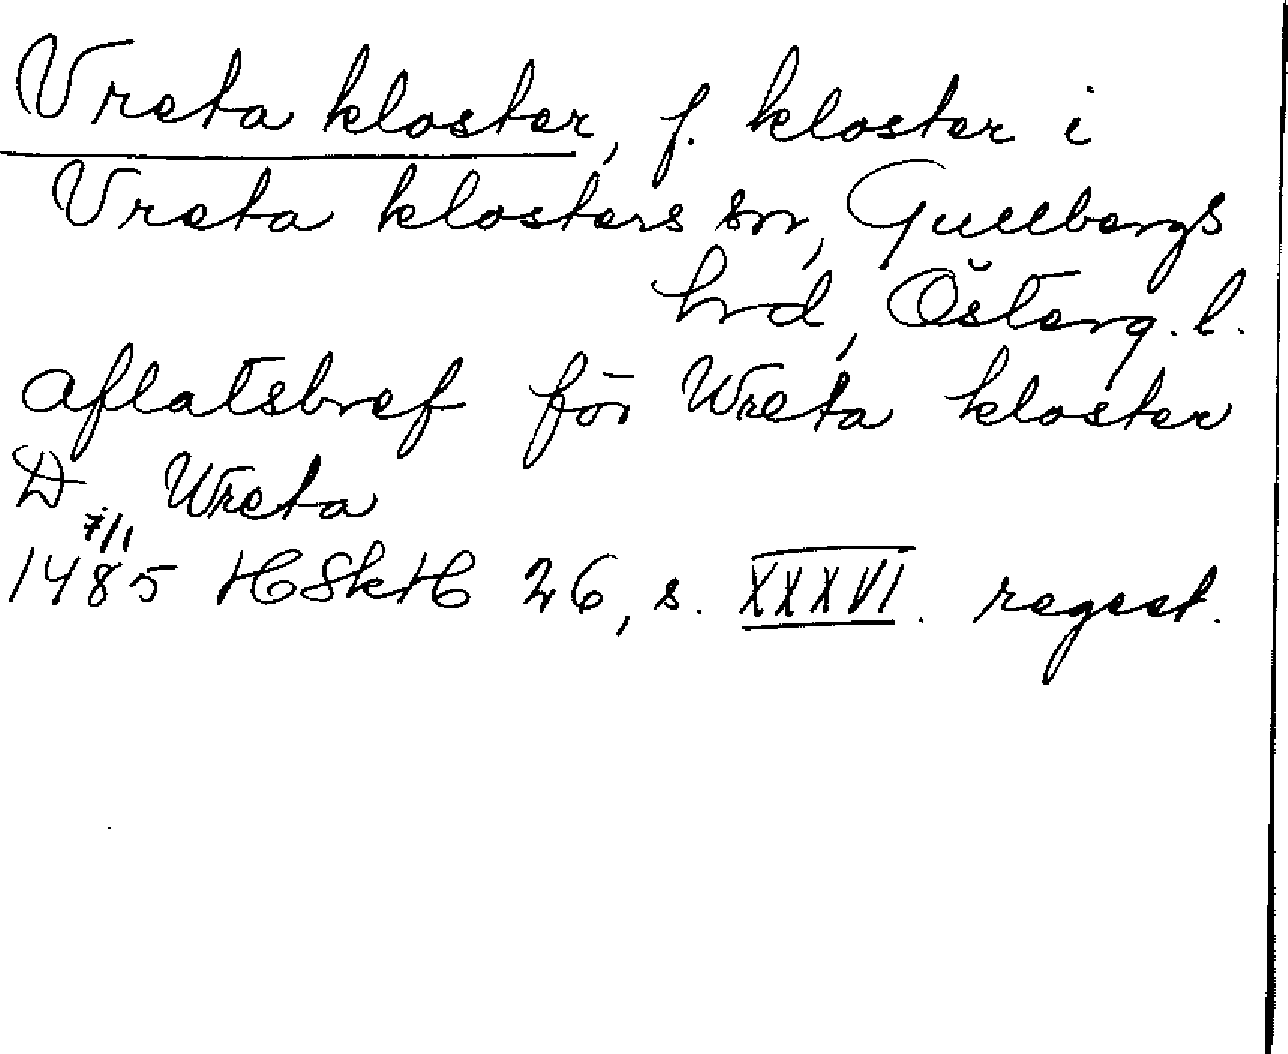 Vreta kloster, f. kloster i
Vreta klosters sn, Gullbergs
hrd, Österg. l.
aflatsbref för Wreta kloster
D. Wreta
7/1
1485 HSkH 26, s. XXXVI. regest.